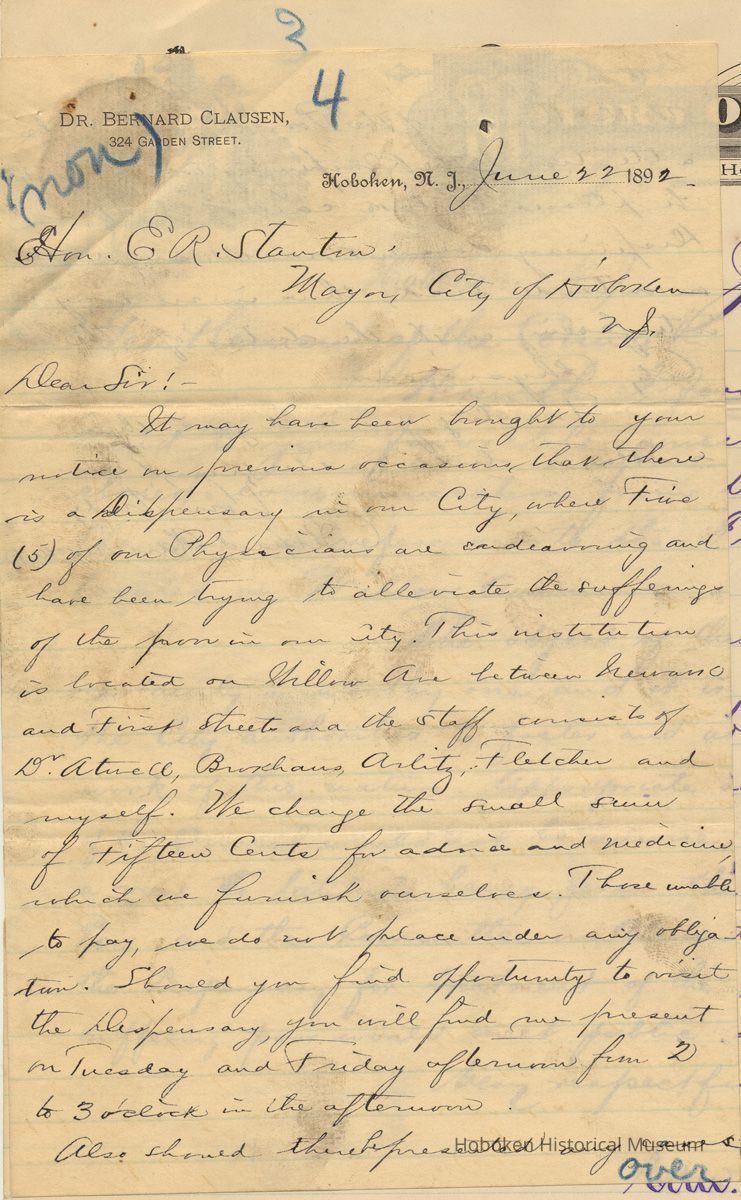 2
4
DR. BERNARD CLAUSEN,
324 GARDEN STREET.
(non)
Hoboken, N. J., June 22 1892
Hon. E R. Stanton,
Mayor, City of Hoboken
N.J.
Dear Sir! -
It may have been brought to your
notice on previous occasions, that there
is a Dispensary in our City, where Five
(5) of our Physicians are endeavoring and
have been trying to alleviate the sufferings
of the poor in our City. This institution
is located on Willow Ave between Newark
and First Streets and the staff consists of
Dr. Atwell, Broxhaus, Arlitz, Fletcher and
myself. We charge the small sum
of Fifteen Cents for advice and medicine,
which we furnish ourselves. Those unable
to pay, we do not place under any obliga-
tion. Should you find opportunity to visit
the Dispensary, you will find me present
on Tuesday and Friday afternoon from 2
to 3 o'clock in the afternoon.
Also should there be any cases
Hoboken Historical Museum
over